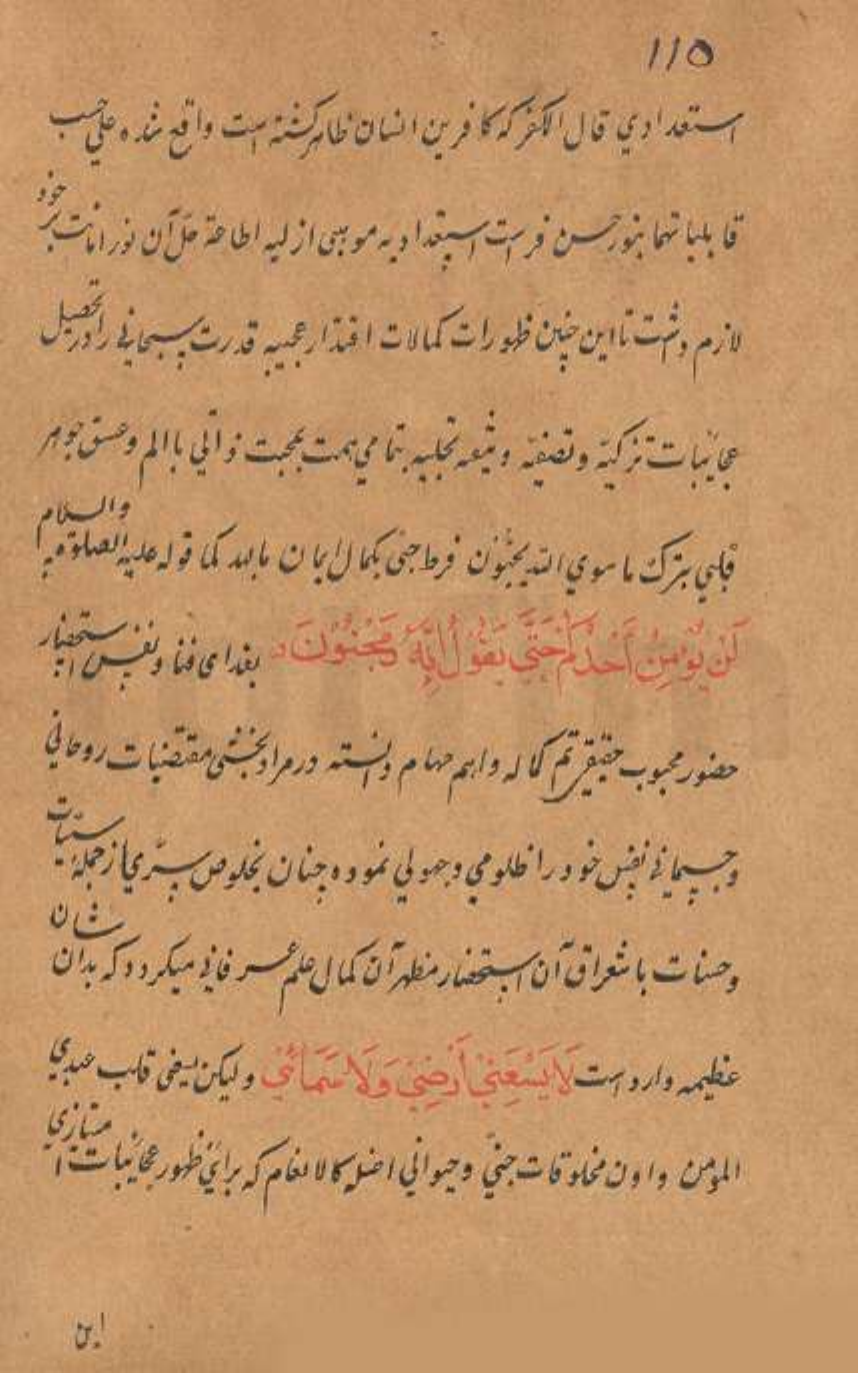 ۱۱۵
استعدادي قال الكفر كه كافرين انسان ظاهر كشته است واقع شده علي حسب
قابلياتهما بنور حسن فراست استعداديه موهبى ازليه اطاعة حل آن نور امانت بر خود
لازم داشت تا اين چنين ظهورات كمالات اقتدار عجيبه قدرت سبحاني را در تحصيل
عجائبات تزكيه وتصفيه تجليه بتمامي همت بمحبت ذواتي باالم وعشق جوهر
قلبي بترك ما سوي الله يحبون فرط بكمال ايمان كما قوله عليه الصلوة والسلام
لَنْ يُؤْمِنَ أَحَدُكُمْ حَتَّى يَقُولَ إِنَّهُ مَجْنُونٌ بغداى فنا ونفس استحضار
حضور محبوب حقيقي تم كماله واهم مهام دانسته در مرادبخشى مقتضيات روحاني
وجسماني نفس خود را ظلومي وجهولي نموده چنان بخلوص سرّي از جملهٔ سيّات
وحسنات آن استحضار مظهر آن كمال علم عرفاني ميكردد كه بدان شان
عظيمه وارد است لَا يَسَعُنِيْ أَرْضِيْ وَلَا سَمَائِيْ وليكن يسعنى قلب عبدي
المؤمن واون مخلوقات جنيّ وحيواني اضل كالانعام كه براي ظهور عجائبات امتيازي
اين